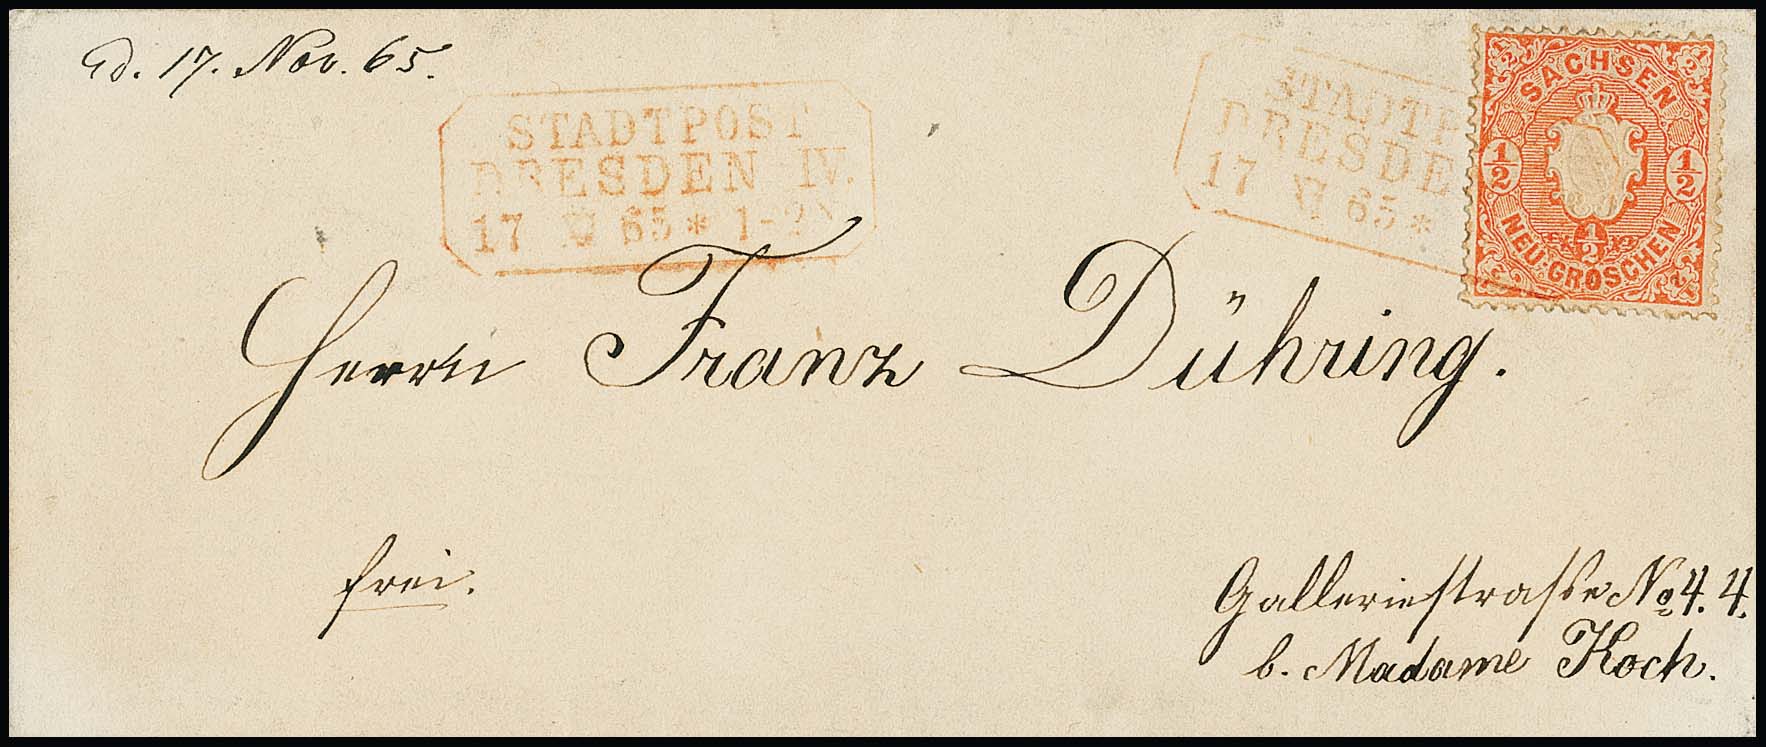 Ed. 17. Nov. 65.
STADTPOST
DRESDEN IV.
17 XI 65 * 1-2
STADTP
DRESDE
17 XI 65 *
SACHSEN
1/2 1/2
1/2
NEU-GROSCHEN
Herrn Franz Dühring.
frei.
Galleriestrasse No 4. 4.
b. Madame Koch.